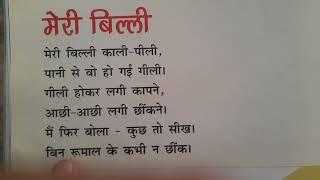 मेरी बिल्ली
मेरी बिल्ली काली-पीली,
पानी से वो हो गई गीली।
गीली होकर लगी कापने,
आछी-आछी लगी छींकने।
मैं फिर बोला - कुछ तो सीख।
बिन रूमाल के कभी न छींक।